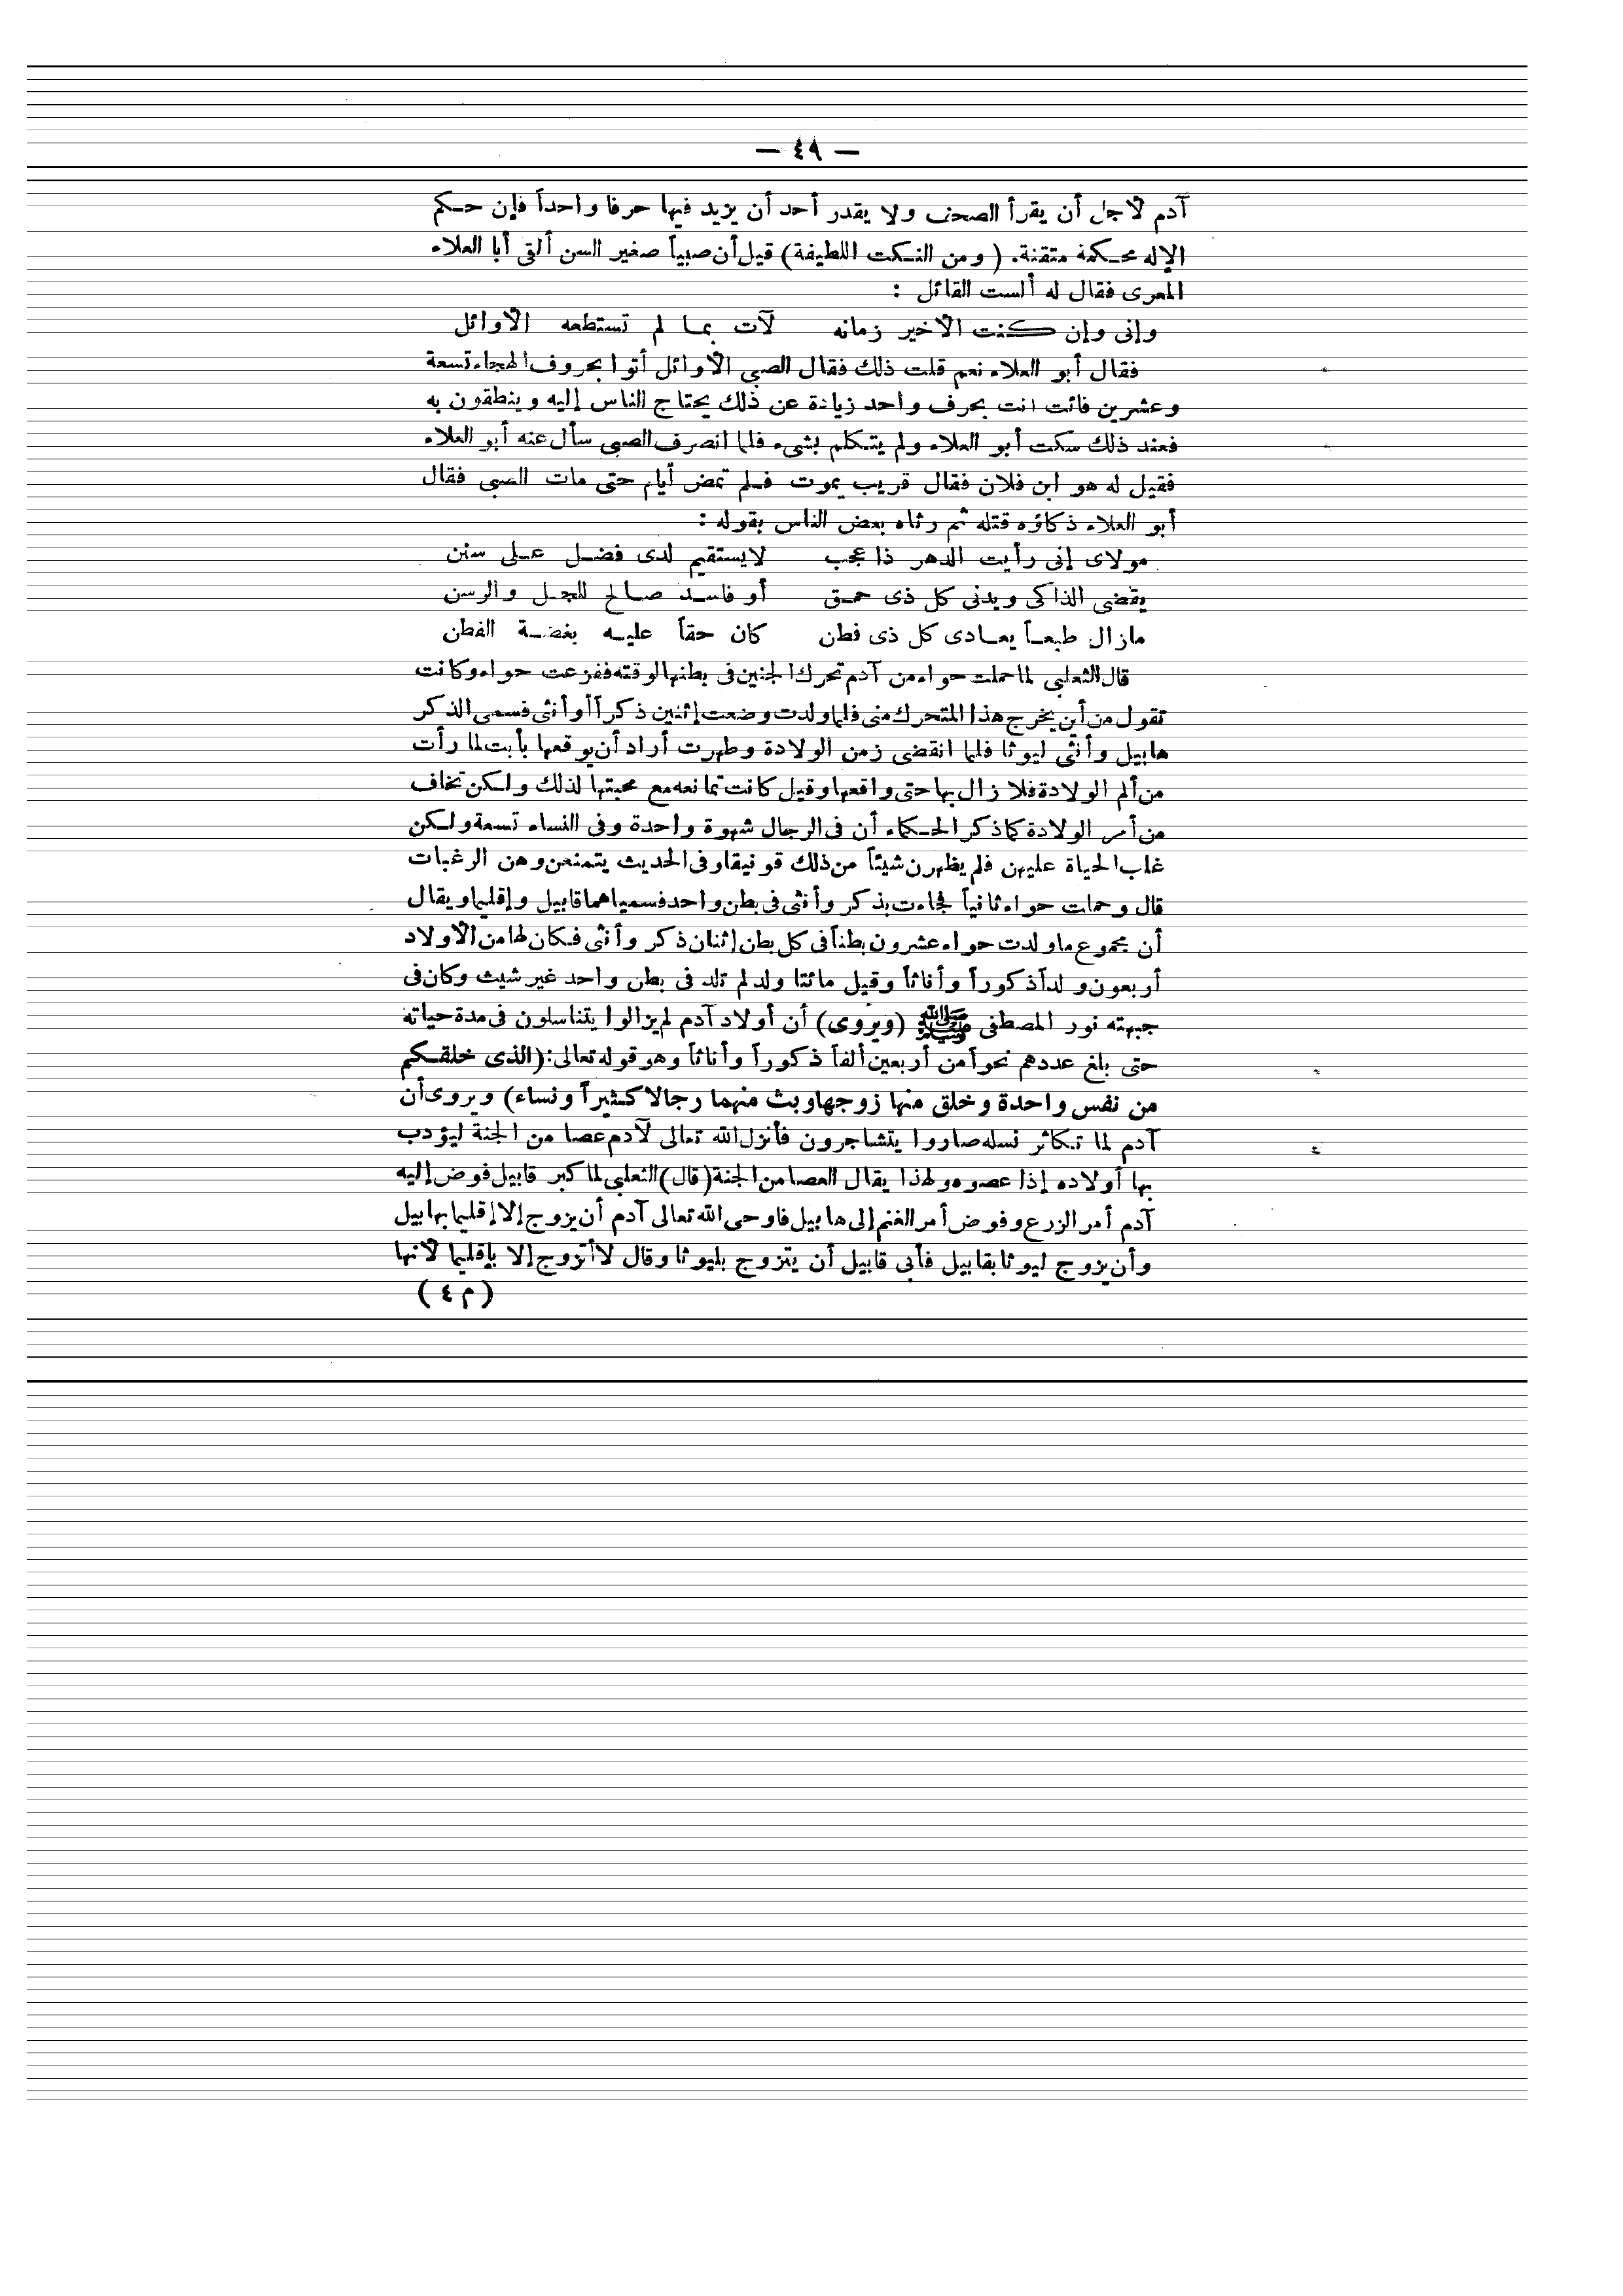 — ٤٩ —
آدم لأجل أن يقرأ الصحف ولا يقدر أحد أن يزيد فيها حرفا واحداً فإن حكم
الإله محكمة متقنة. (ومن النكت اللطيفة) قيل أن صبياً صغير السن ألقى أبا العلاء
المعرى فقال له ألست القائل :
وإنى وإن كنت الأخير زمانه لآت بما لم تستطعه الأوائل
فقال أبو العلاء نعم قلت ذلك فقال الصبى الأوائل أتوا بحروف الهجاء تسعة
وعشرين فائت انت بحرف واحد زيادة عن ذلك يحتاج الناس إليه وينطقون به
فعند ذلك سكت أبو العلاء ولم يتكلم بشىء فلما انصرف الصبى سأل عنه أبو العلاء
فقيل له هو ابن فلان فقال قريب يموت فلم تمض أيام حتى مات الصبى فقال
أبو العلاء ذكاؤه قتله ثم رثاه بعض الناس بقوله :
مولاى إنى رأيت الدهر ذا عجب لا يستقيم لدى فضل على سنن
يقضى الذاكى ويدنى كل ذى حمق أو فاسد صالح للجل والرسن
مازال طبعاً يعادى كل ذى فطن كان حقاً عليه بغضة الفطن
قال الثعلبى لما حملت حواء من آدم تحرك الجنين فى بطنها لوقته ففزعت حواء وكانت
تقول من أين يخرج هذا المتحرك منى فلما ولدت وضعت إثنين ذكراً أو أنثى فسمى الذكر
هابيل وأنثى ليوثا فلما انقضى زمن الولادة وطهرت أراد أن يوقعها بأبت لما رأت
من ألم الولادة فلا زال بها حتى واقعها وقيل كانت تمانعه مع محبتها لذلك ولكن تخاف
من أمر الولادة كما ذكر الحكماء أن فى الرجال شهوة واحدة وفى النساء تسعة ولكن
غلب الحياة عليهن فلم يظهرن شيئاً من ذلك قو نيقاوفى الحديث يتمنعن وهن الرغبات
قال وحملت حواء ثانياً فجاءت بذكر وأنثى فى بطن واحد فسمياهما قابيل وإقليما ويقال
أن مجموع ما ولدت حواء عشرون بطناً فى كل بطن إثنان ذكر وأنثى فكان لها من الأولاد
أربعون ولداً ذكوراً وأناثاً وقيل مائتا ولد لم تلد فى بطن واحد غير شيث وكان فى
جبهته نور المصطفى ﷺ (ويروى) أن أولاد آدم لم يزالوا يتناسلون فى مدة حياته
حتى بلغ عددهم نحواً من أربعين ألفاً ذكوراً وأناثاً وهو قوله تعالى: (الذى خلقكم
من نفس واحدة وخلق منها زوجها وبث منهما رجالا كثيراً ونساء) ويروى أن
آدم لما تكاثر نسله صاروا يتشاجرون فأنزل الله تعالى لآدم عصا من الجنة ليؤدب
بها أولاده إذا عصوه ولهذا يقال العصا من الجنة (قال) الثعلبى لما كبر قابيل فوض إليه
آدم أمر الزرع وفوض أمر الغنم إلى هابيل فاوحى الله تعالى آدم أن يزوج إلا إقليما بهابيل
وأن يزوج ليوثا بقابيل فأبى قابيل أن يتزوج بليوثا وقال لا أتزوج إلا بإقليما لأنها
(م ٤)